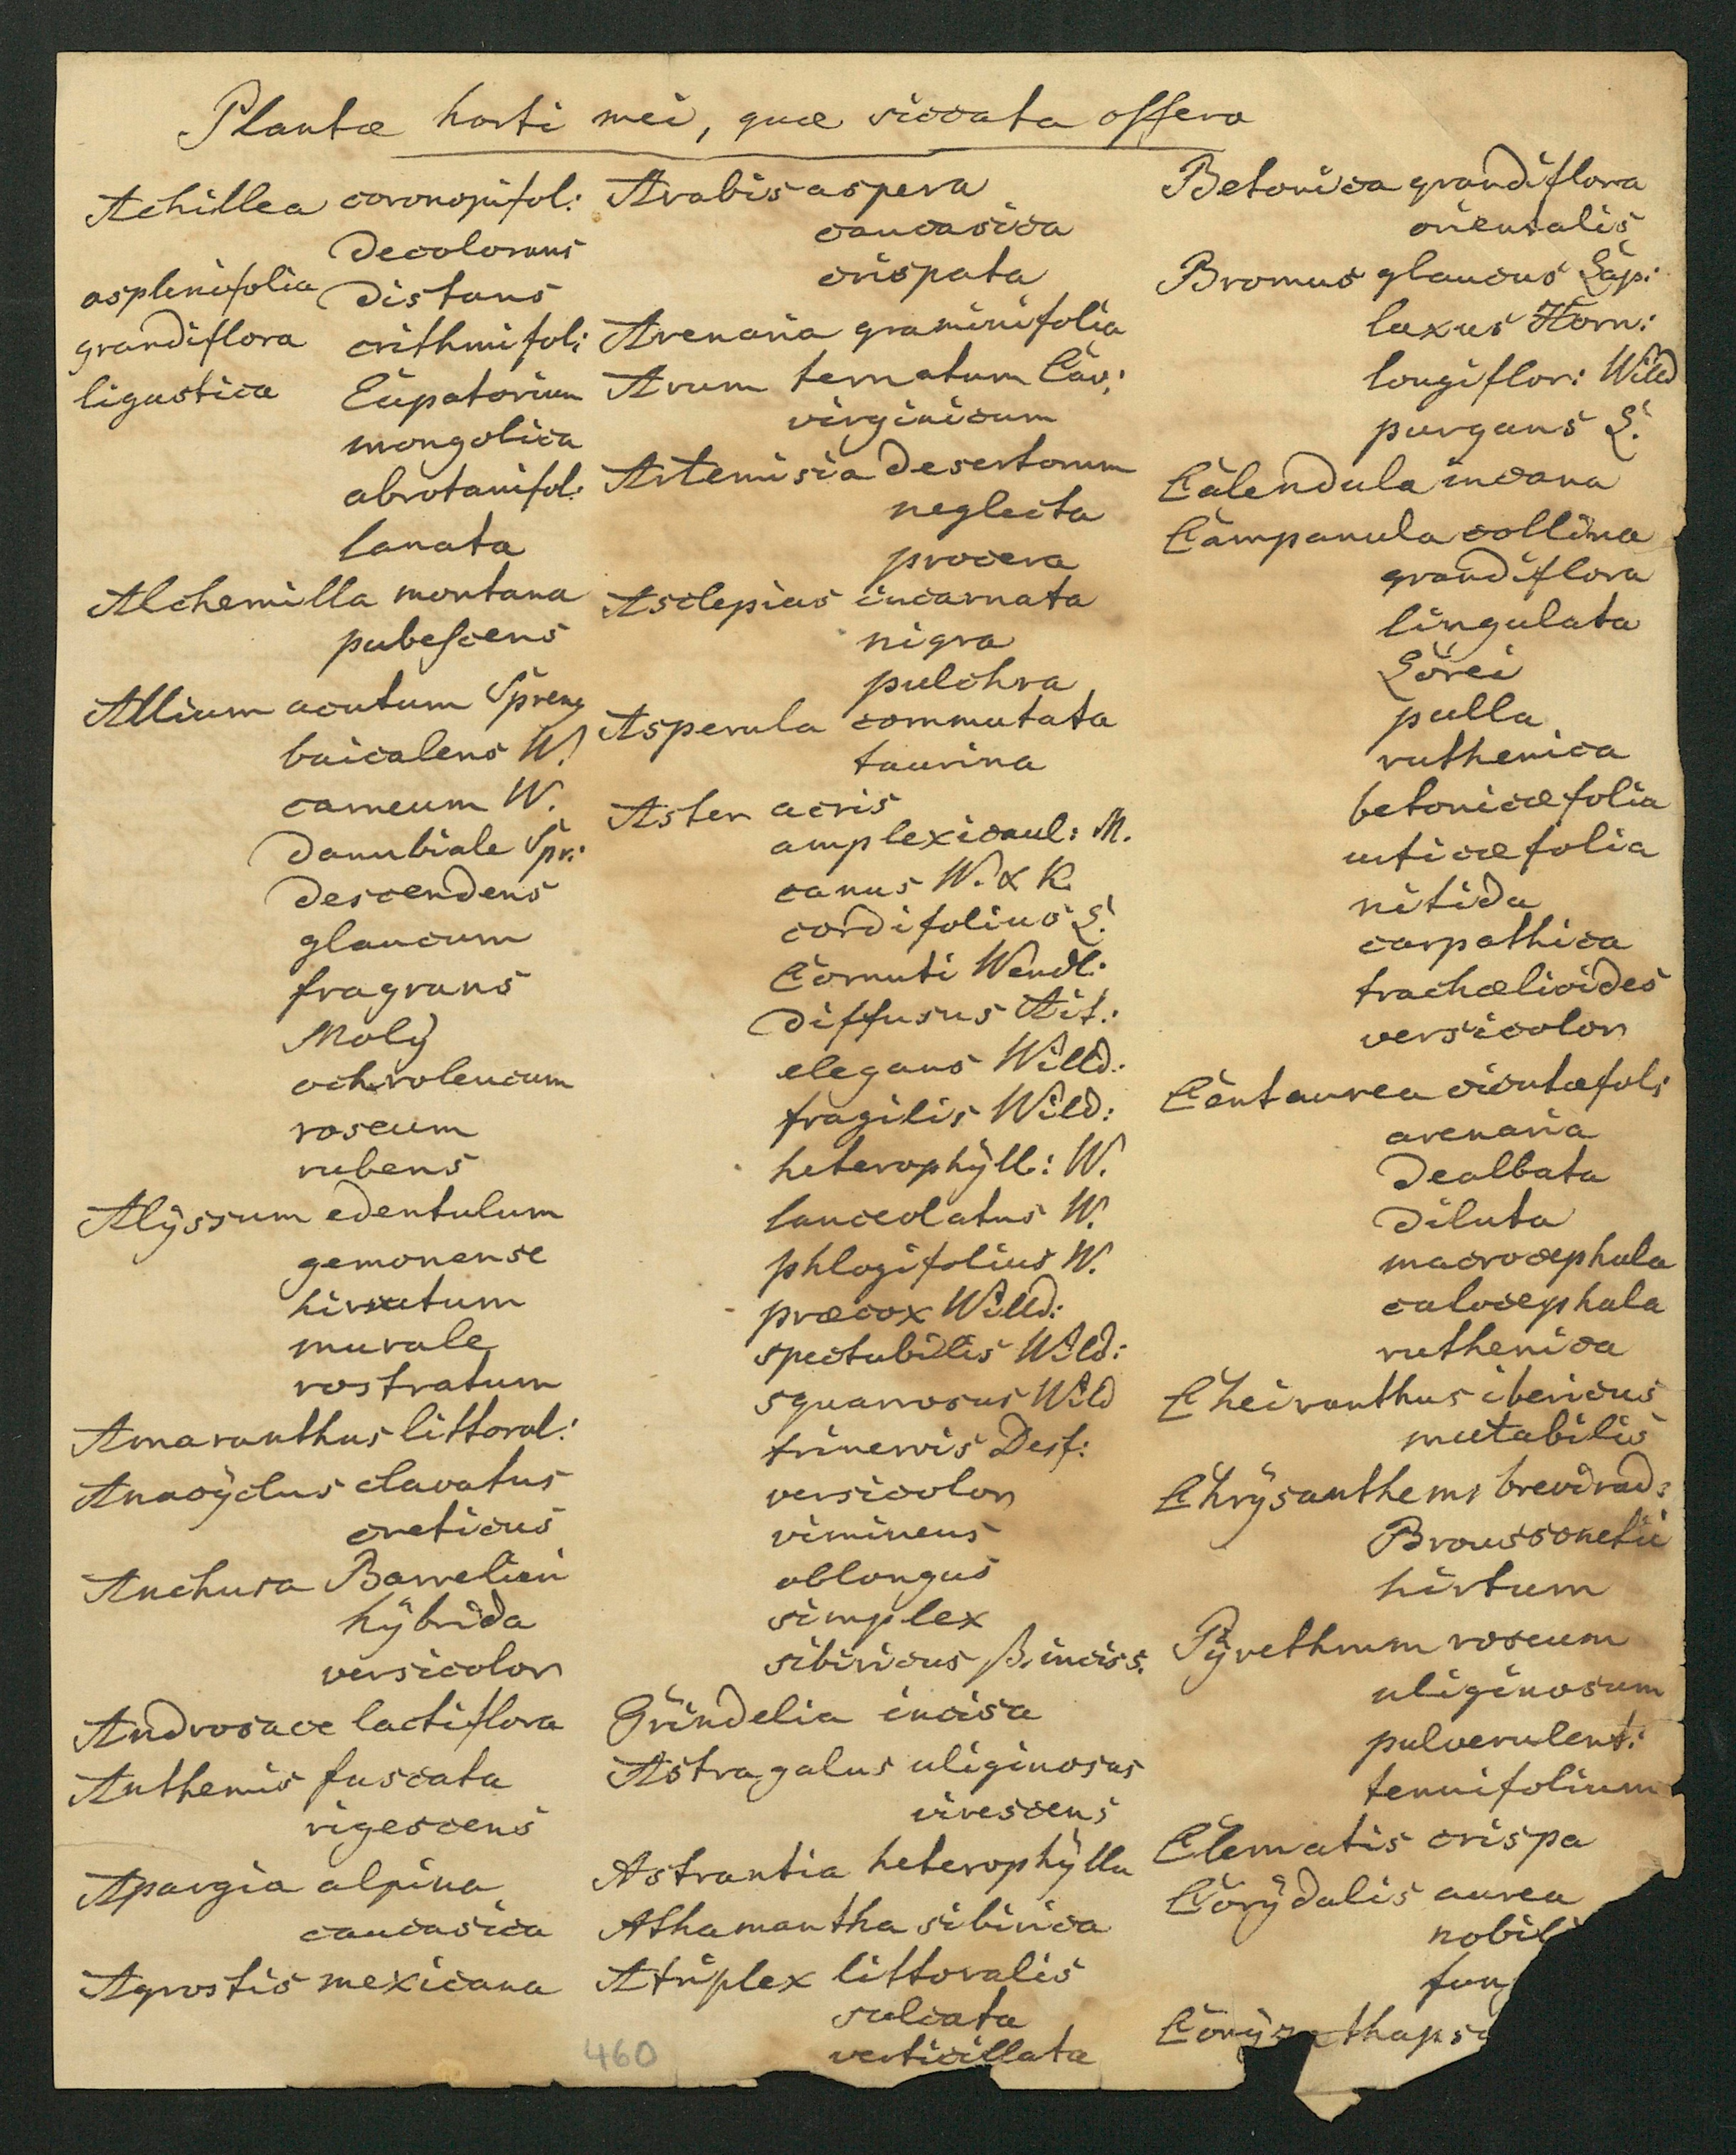 Plantæ horti mei, quæ siccata offero
Achillea coronopifol:
decolorans
asplenifolia distans
grandiflora crithmifol:
ligustica Eupatorium
mongolica
abrotanifol:
lanata
Alchemilla montana
pubescens
Allium acutum Spreng
baicalens W.
carneum W.
danubiale Spr:
descendens
glaucum
fragrans
Moly
ochroleucum
roseum
rubens
Alÿssum edentulum
gemonense
hirsutum
murale
rostratum
Amaranthus littoral:
Anacÿclus clavatus
creticus
Anchusa Barrelieri
hÿbrida
versicolor
Androsace lactiflora
Anthemis fuscata
rigescens
Apargia alpina
caucasica
Agrostis mexicana
460
Arabis aspera
caucasica
crispata
Arenaria graminifolia
Arum ternatum Cav:
virginicum
Artemisia desertorum
neglecta
procera
Asclepias incarnata
nigra
pulchra
Asperula commutata
taurina
Aster acris
amplexicaul: M.
canus W. & K.
cordifolius L.
Cornuti Wendl:
diffusus Ait.:
elegans Willd:
fragilis Wild:
heterophÿll: W.
lanceolatus W.
phlogifolius W.
præcox Willd:
spectabilis Wild:
squarrosus Wild
trinervis Desf:
versicolor
vimineus
oblongus
simplex
sibiricus β. inciss.
Grindelia incisa
Astragalus uliginosus
virescens
Astrantia heterophÿlla
Athamantha sibirica
Atriplex littoralis
sulcata
verticillata
Betonica grandiflora
orientalis
Bromus glaucus Lap:
laxus Horn:
longiflor: Willd
purgans L.
Calendula incana
Campanula collina
grandiflora
lingulata
Lorei
pulla
ruthenica
betonicæfolia
urticæfolia
nitida
carpathica
trachælioides
versicolor
Centaurea cicutæfol:
arenaria
dealbata
diluta
macrocephala
calocephala
ruthenica
Cheiranthus ibericus
mutabilis
Chrÿsanthem: brevirad:
Broussonetii
hirtum
Pÿrethrum roseum
uliginosum
pulverulent:
tenuifolium
Clematis crispa
Corÿdalis aurea
nobili
fung
thapso